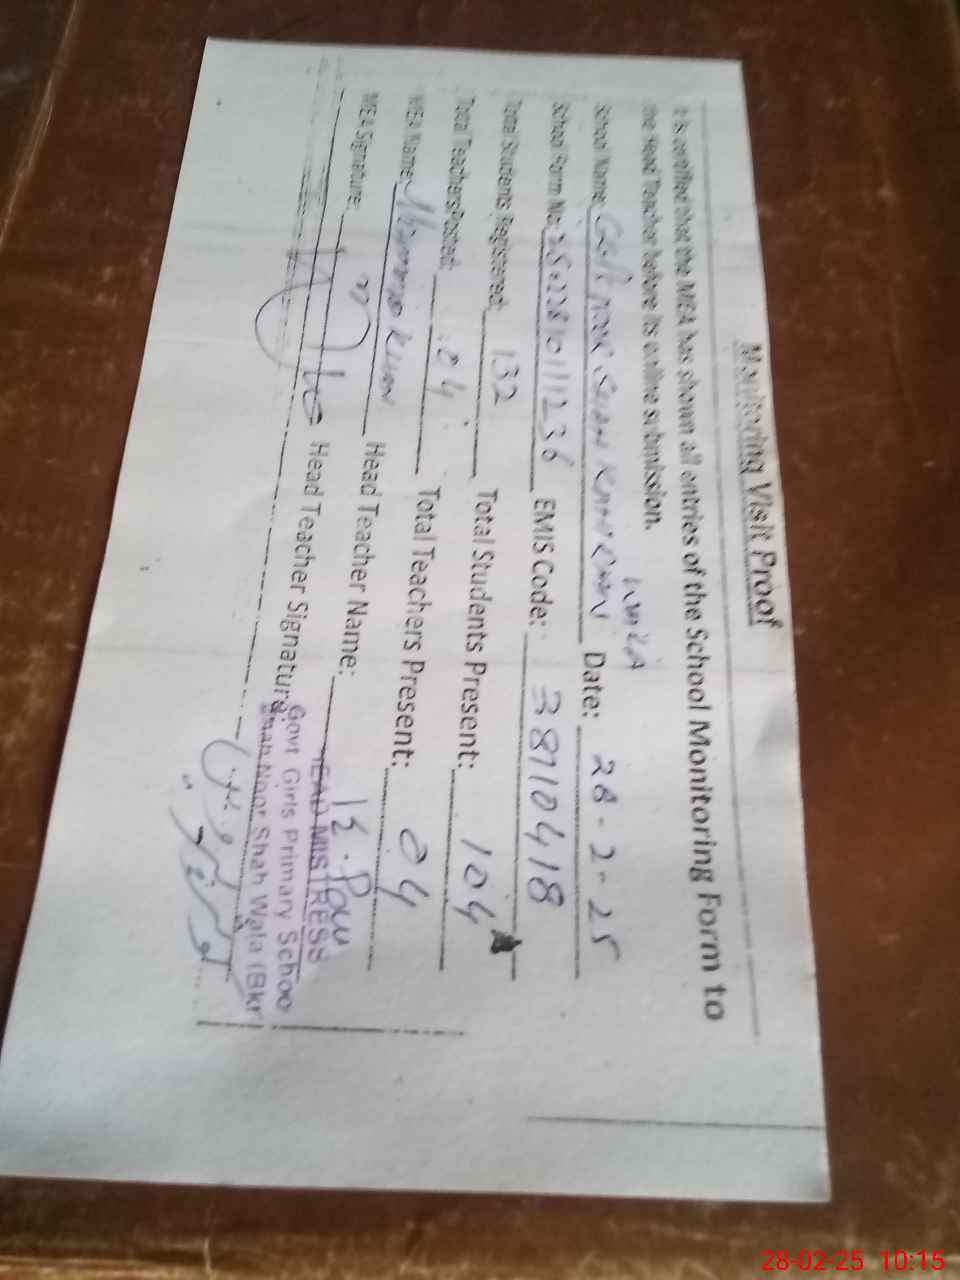 Monitoring Visit Proof
It is verified that the MEA has shown all entries of the School Monitoring Form to
the Head Teacher before its online submission.
School Name: Date: 28-2-25
School Form No: EMIS Code: 38710418
Total Students Registered: 132 Total Students Present: 104
Total Teachers Posted: 04 Total Teachers Present: 04
MEA Name: Head Teacher Name:
MEA Signature: Head Teacher Signature:
HEAD MISTRESS
Govt Girls Primary Schoo
Noor Shah Wala (Bkr
28-02-25 10:15